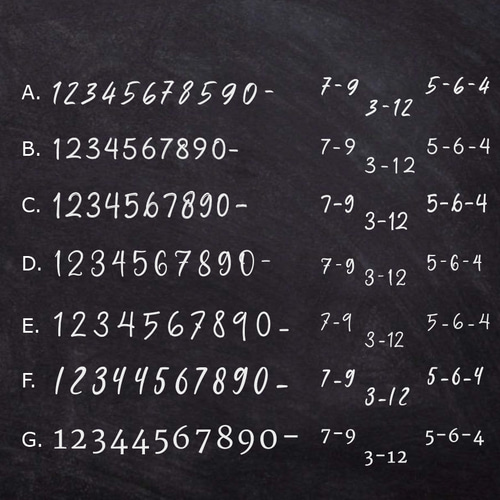 A. 123456785 90- 7-9 3-12 5-6-4
B. 1234567890- 7-9 3-12 5-6-4
C. 1234567890- 7-9 3-12 5-6-4
D. 1234567890- 7-9 3-12 5-6-4
E. 1234567890- 7-9 3-12 5-6-4
F. 12344567890- 7-9 3-12 5-6-4
G. 12344567890- 7-9 3-12 5-6-4